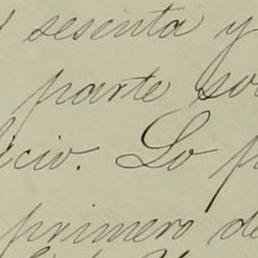 sesenta y
parte so
icio. Lo p
primero de